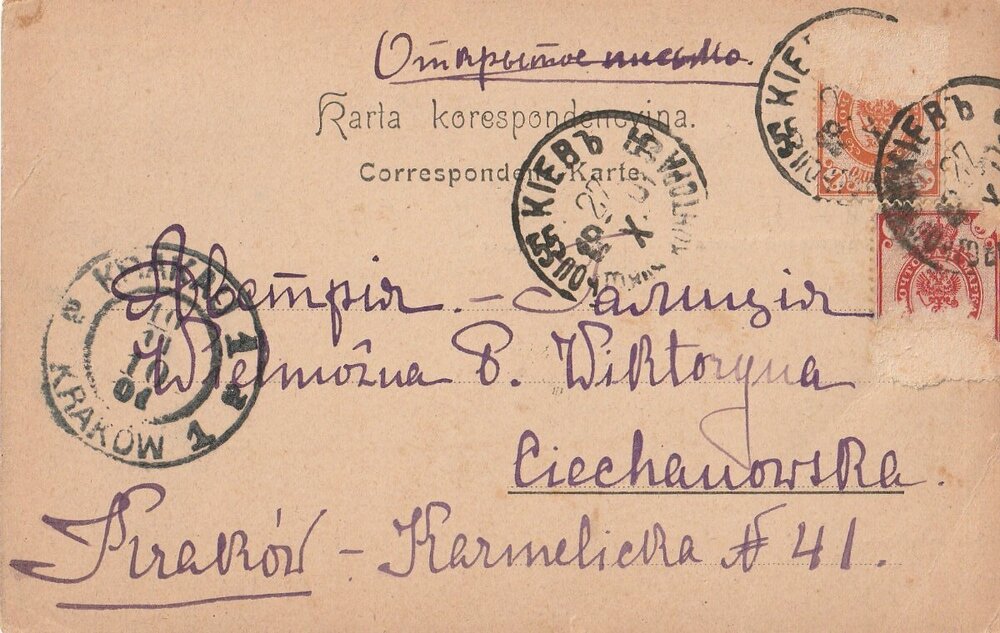 Открытое письмо.
Karta korespondencyjna.
Correspondenz-Karte.
КІЕВЪ
КІЕВЪ
КІЕВЪ
27 X 01
Австрія. - Галиція
Wielmożna P. Wiktoryna
Ciechanowska.
Kraków - Karmelicka № 41.
KRAKÓW 1
KRAKAU 1